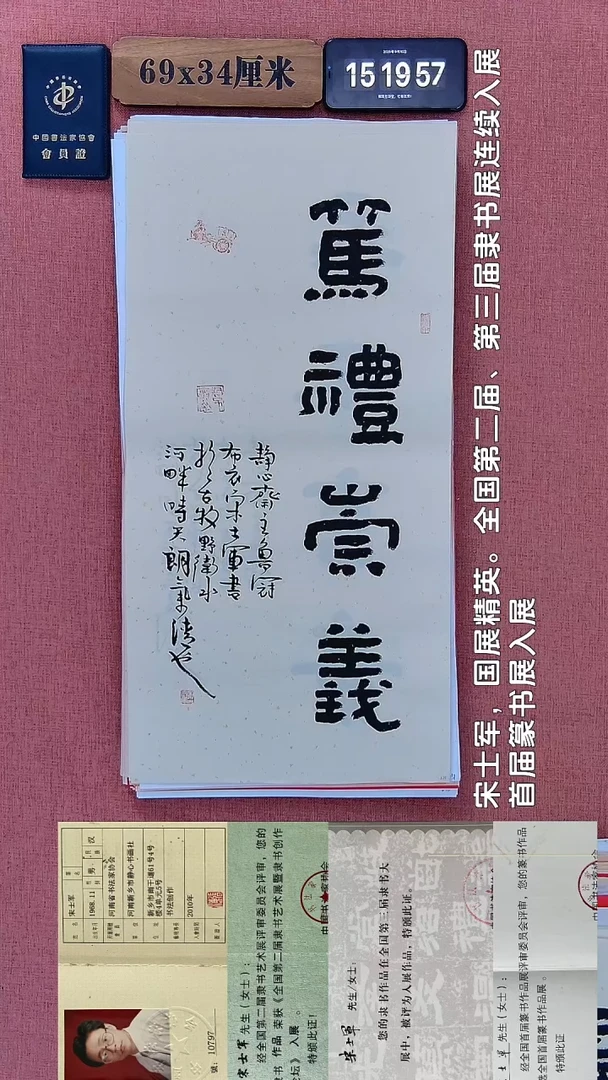 中国書法家協會
會員證
69x34厘米
15 19 57
篤禮崇義
静心齋主魯冠
布衣宋士軍書
於古牧野衛水
河畔時天朗氣清也
宋士军，国展精英。全国第二届、第三届隶书展连续入展
首届篆书展入展
宋士军
1968.11
男
汉
河南省书法家协会
河南新乡市静心书画社
新乡市南干道61号4号
楼4单元5号
书法创作
2010年
號：10797
宋士军 先生(女士)：
经全国第二届隶书艺术展评审委员会评审，您的
隶书 作品 荣获《全国第二届隶书艺术展暨隶书创作
论坛》 入展 。
特颁此证！
宋士军 先生/女士：
您的隶书作品在全国第三届隶书大
展中，被评为入展作品，特颁此证。
士军 先生(女士)：
经全国首届篆书作品展评审委员会评审，您的篆书作品
全国首届篆书作品展。
特颁此证